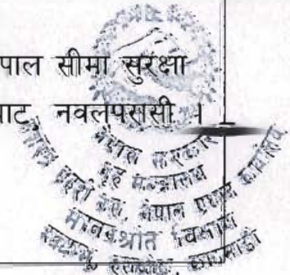 पाल सीमा सुरक्षा
ाट नवलपरासी ।
नेपाल सरकार
गृह मन्त्रालय
सशस्त्र प्रहरी बल, नेपाल प्रधान कार्यालय
मानवश्रोत विकास
काठमाडौं